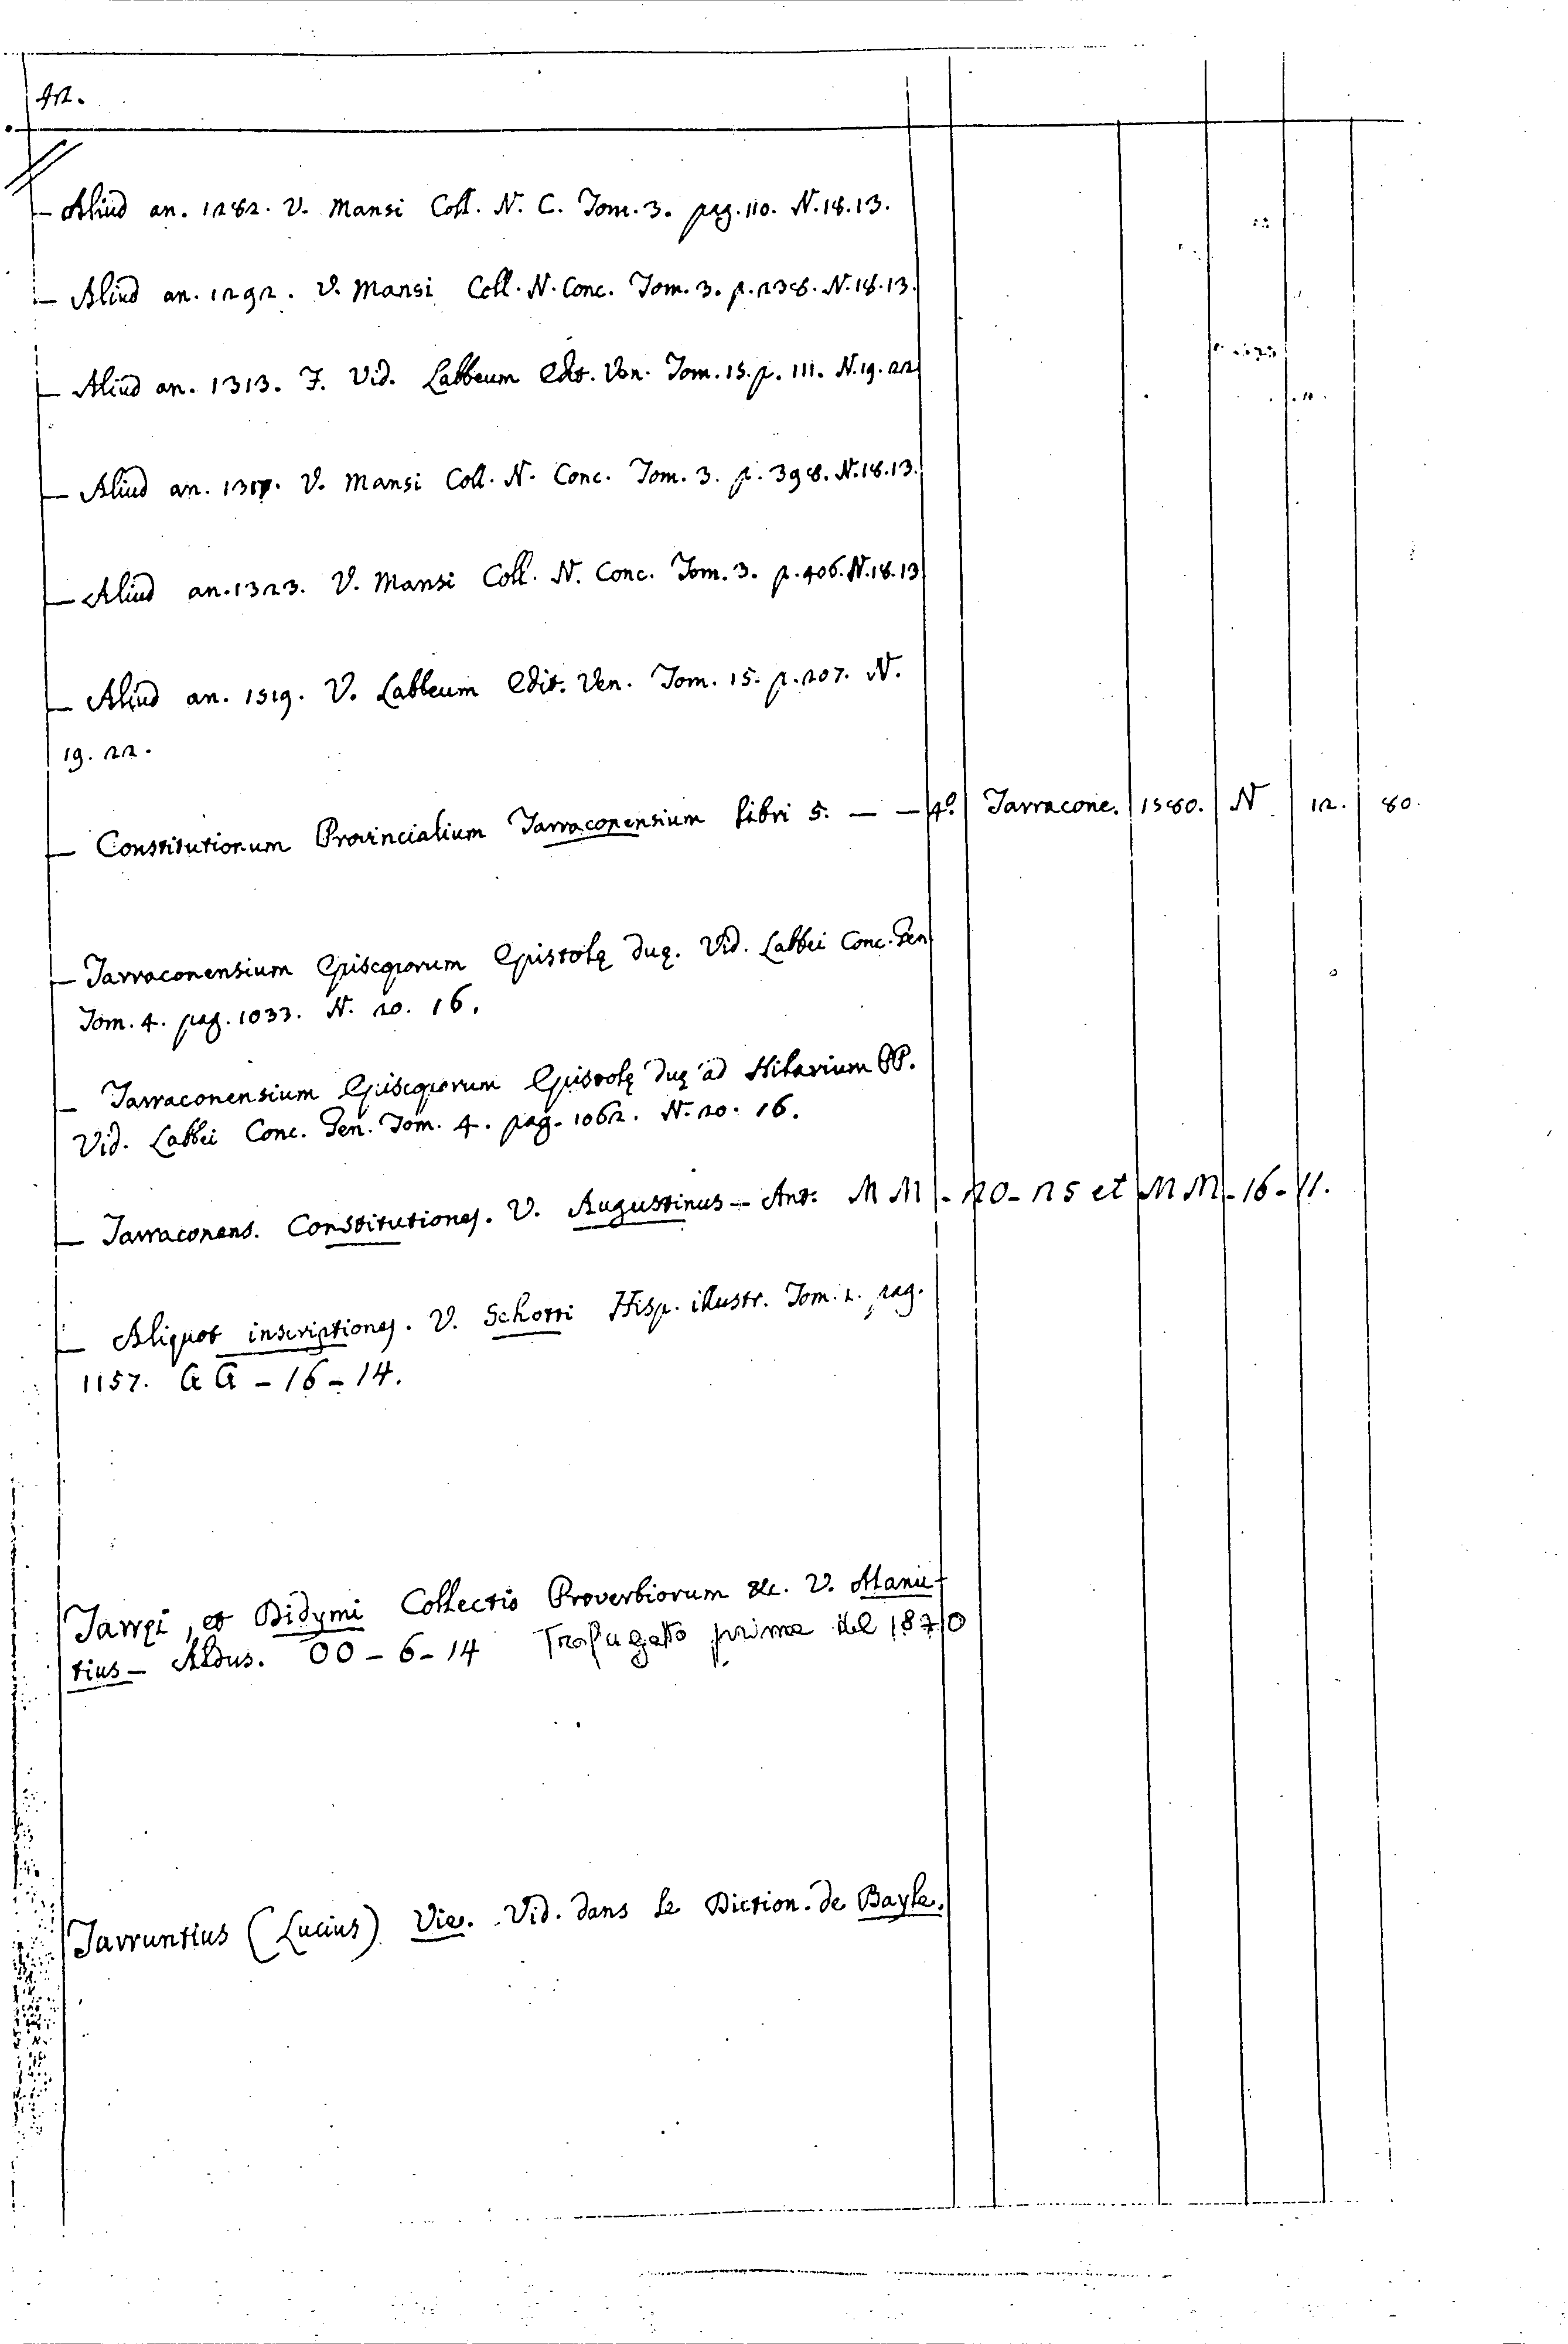 An.
— Aliud an. 1282. V. Mansi Coll. N. C. Tom. 3. pag. 110. N. 18. 13.
— Aliud an. 1292. V. Mansi Coll. N. Conc. Tom. 3. p. 238. N. 18. 13.
— Aliud an. 1313. Vid. Labbeum Edit. Ven. Tom. 15. p. 111. N. 19. 22
— Aliud an. 1317. V. Mansi Coll. N. Conc. Tom. 3. p. 398. N. 18. 13.
— Aliud an. 1323. V. Mansi Coll. N. Conc. Tom. 3. p. 406. N. 18. 13
— Aliud an. 1319. V. Labbeum Edit. Ven. Tom. 15. p. 207. N.
19. 22.
— Constitutionum Provincialium Tarraconensium Libri 5. — — 4.º Tarracone. 1580. N 12. 80.
— Tarraconensium Episcoporum Epistolę duę. Vid. Labbei Conc. Gen
Tom. 4. pag. 1033. N. 20. 16.
— Tarraconensium Episcoporum Epistolę duę ad Hilarium PP.
Vid. Labbei Conc. Gen. Tom. 4. pag. 1062. N. 20. 16.
— Tarraconens. Constitutiones. V. Augustinus — Ant: MM - 20 - 25 et MM - 16 - 11.
— Aliquot inscriptiones. V. Schotti Hisp. illustr. Tom. 2. pag.
1157. GG - 16 - 14.
Tarręi, et Didymi Collectio Proverbiorum &c. V. Manu-
tius — Aldus. OO - 6 - 14 Trafugato prima del 1870
Tarruntius (Lucius) Vie. Vid. dans le Diction. de Bayle.